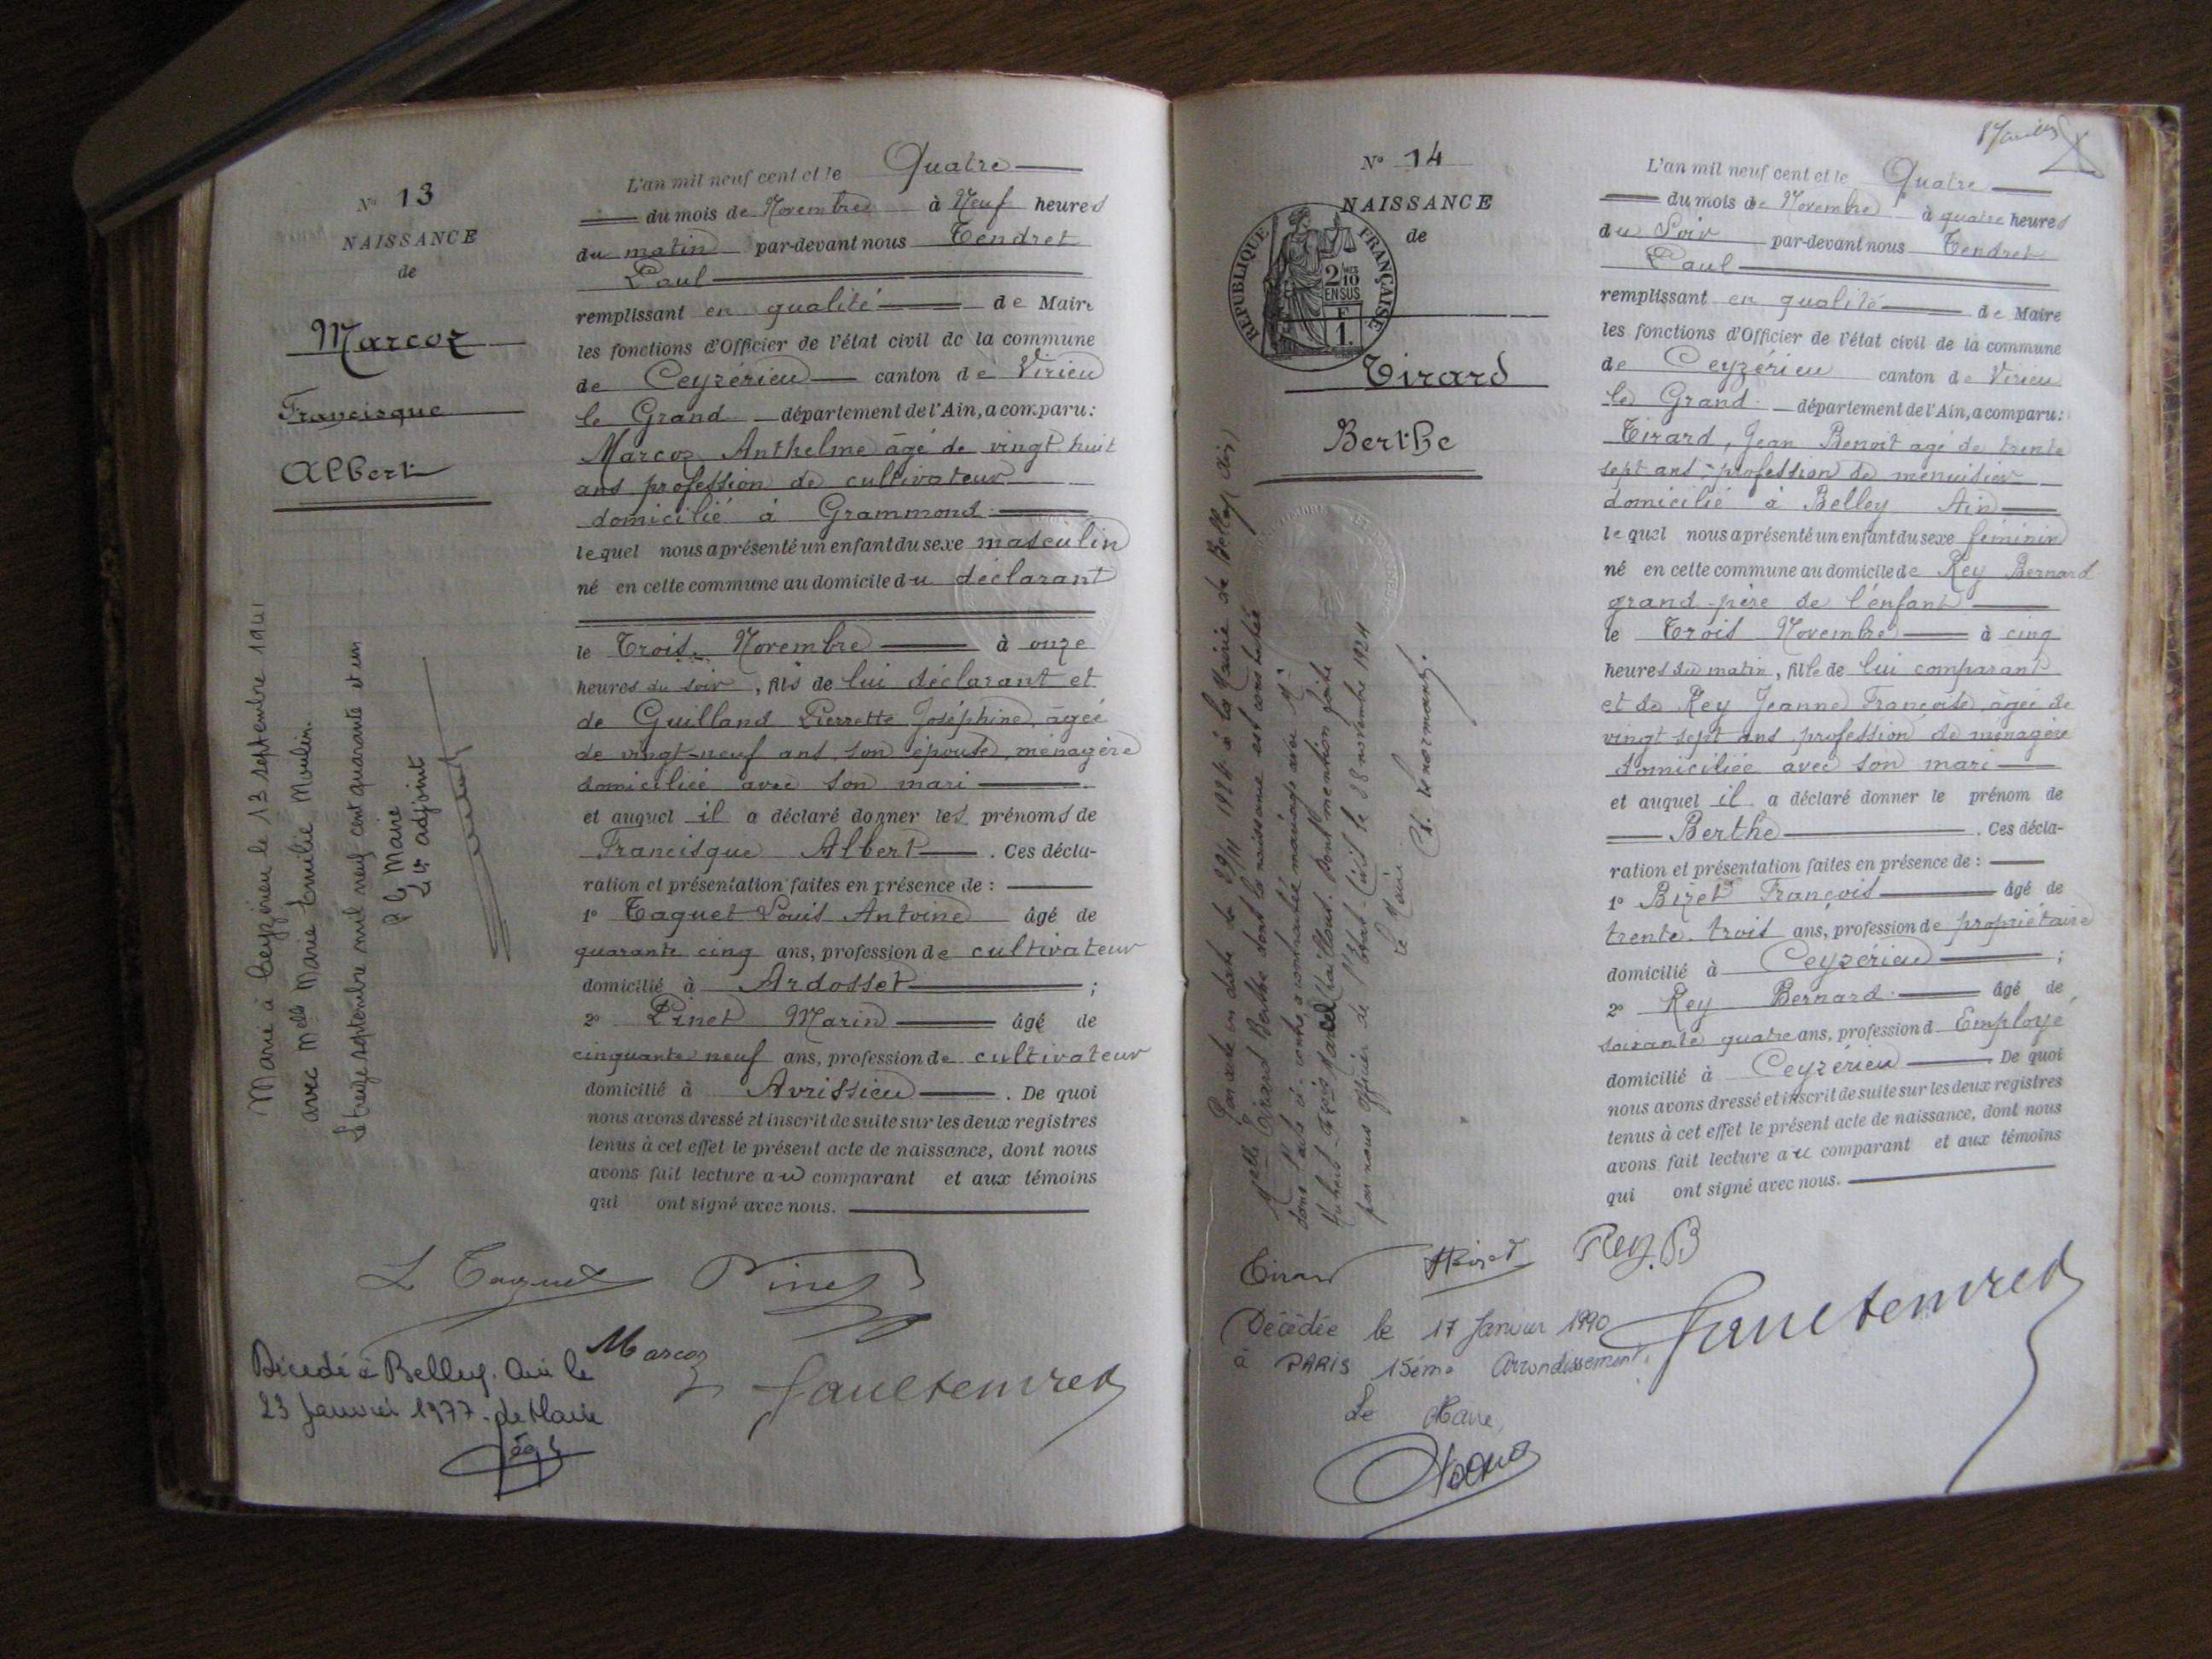 N° 13
NAISSANCE
de
Marcoz
Francisque
Albert
L'an mil neuf cent et le Quatre
du mois de Novembre à Neuf heures
du matin par-devant nous Tendret
Paul
remplissant en qualité de Maire
les fonctions d'Officier de l'état civil de la commune
de Ceyzérieu canton de Virieu
le Grand département de l'Ain, a comparu:
Marcoz Anthelme âgé de vingt-huit
ans profession de cultivateur
domicilié à Grammond
lequel nous a présenté un enfant du sexe masculin
né en cette commune au domicile du déclarant
le Trois Novembre à onze
heures du soir, fils de lui déclarant et
de Guilland Pierrette Joséphine, âgée
de vingt-neuf ans, son épouse, ménagère
domiciliée avec son mari
et auquel il a déclaré donner les prénoms de
Francisque Albert. Ces décla-
ration et présentation faites en présence de :
1° Taquet Louis Antoine âgé de
quarante cinq ans, profession de cultivateur
domicilié à Ardosset ;
2° Pinet Marin âgé de
cinquante neuf ans, profession de cultivateur
domicilié à Avrissieu. De quoi
nous avons dressé et inscrit de suite sur les deux registres
tenus à cet effet le présent acte de naissance, dont nous
avons fait lecture au comparant et aux témoins
qui ont signé avec nous.
L Taquet Pinet
Marcoz
Marié à Ceyzérieu le 13 septembre 1941
avec Melle Marie Emilie Moulin.
Le treize septembre mil neuf cent quarante et un
P le Maire
Le 1er adjoint
Décédé à Belley. Ain le
23 Janvier 1977. le Maire
N° 14
NAISSANCE
de
REPUBLIQUE FRANÇAISE
2 MES 10
EN SUS
F
1.
Tirard
Berthe
L'an mil neuf cent et le Quatre
du mois de Novembre à quatre heures
du Soir par-devant nous Tendret
Paul
remplissant en qualité de Maire
les fonctions d'Officier de l'état civil de la commune
de Ceyzérieu canton de Virieu
le Grand département de l'Ain, a comparu:
Tirard, Jean Benoit agé de trente
sept ans profession de menuisier
domicilié à Belley Ain
lequel nous a présenté un enfant du sexe féminin
né en cette commune au domicile de Rey Bernard
grand-père de l'enfant
le Trois Novembre à cinq
heures du matin, fille de lui comparant
et de Rey Jeanne Françoise âgée de
vingt sept ans profession de ménagère
domiciliée avec son mari
et auquel il a déclaré donner le prénom de
Berthe. Ces décla-
ration et présentation faites en présence de :
1° Bizet François âgé de
trente-trois ans, profession de propriétaire
domicilié à Ceyzérieu ;
2° Rey Bernard âgé de
soixante quatre ans, profession d Employé
domicilié à Ceyzérieu De quoi
nous avons dressé et inscrit de suite sur les deux registres
tenus à cet effet le présent acte de naissance, dont nous
avons fait lecture au comparant et aux témoins
qui ont signé avec nous.
Par acte en date du 29/11 1924 à la Mairie de Belley (Ain)
Melle Tirard Berthe dont la naissance est constatée
dans l'acte ci-contre, a contracté mariage avec Mr
dont mention faite
par nous Officier de l'Etat-Civil le 28 novembre 1924
Le Maire
Tirard Bizet Rey.B
Décédée le 17 Janvier 1990
à PARIS 15ème Arrondissement.
Le Maire,